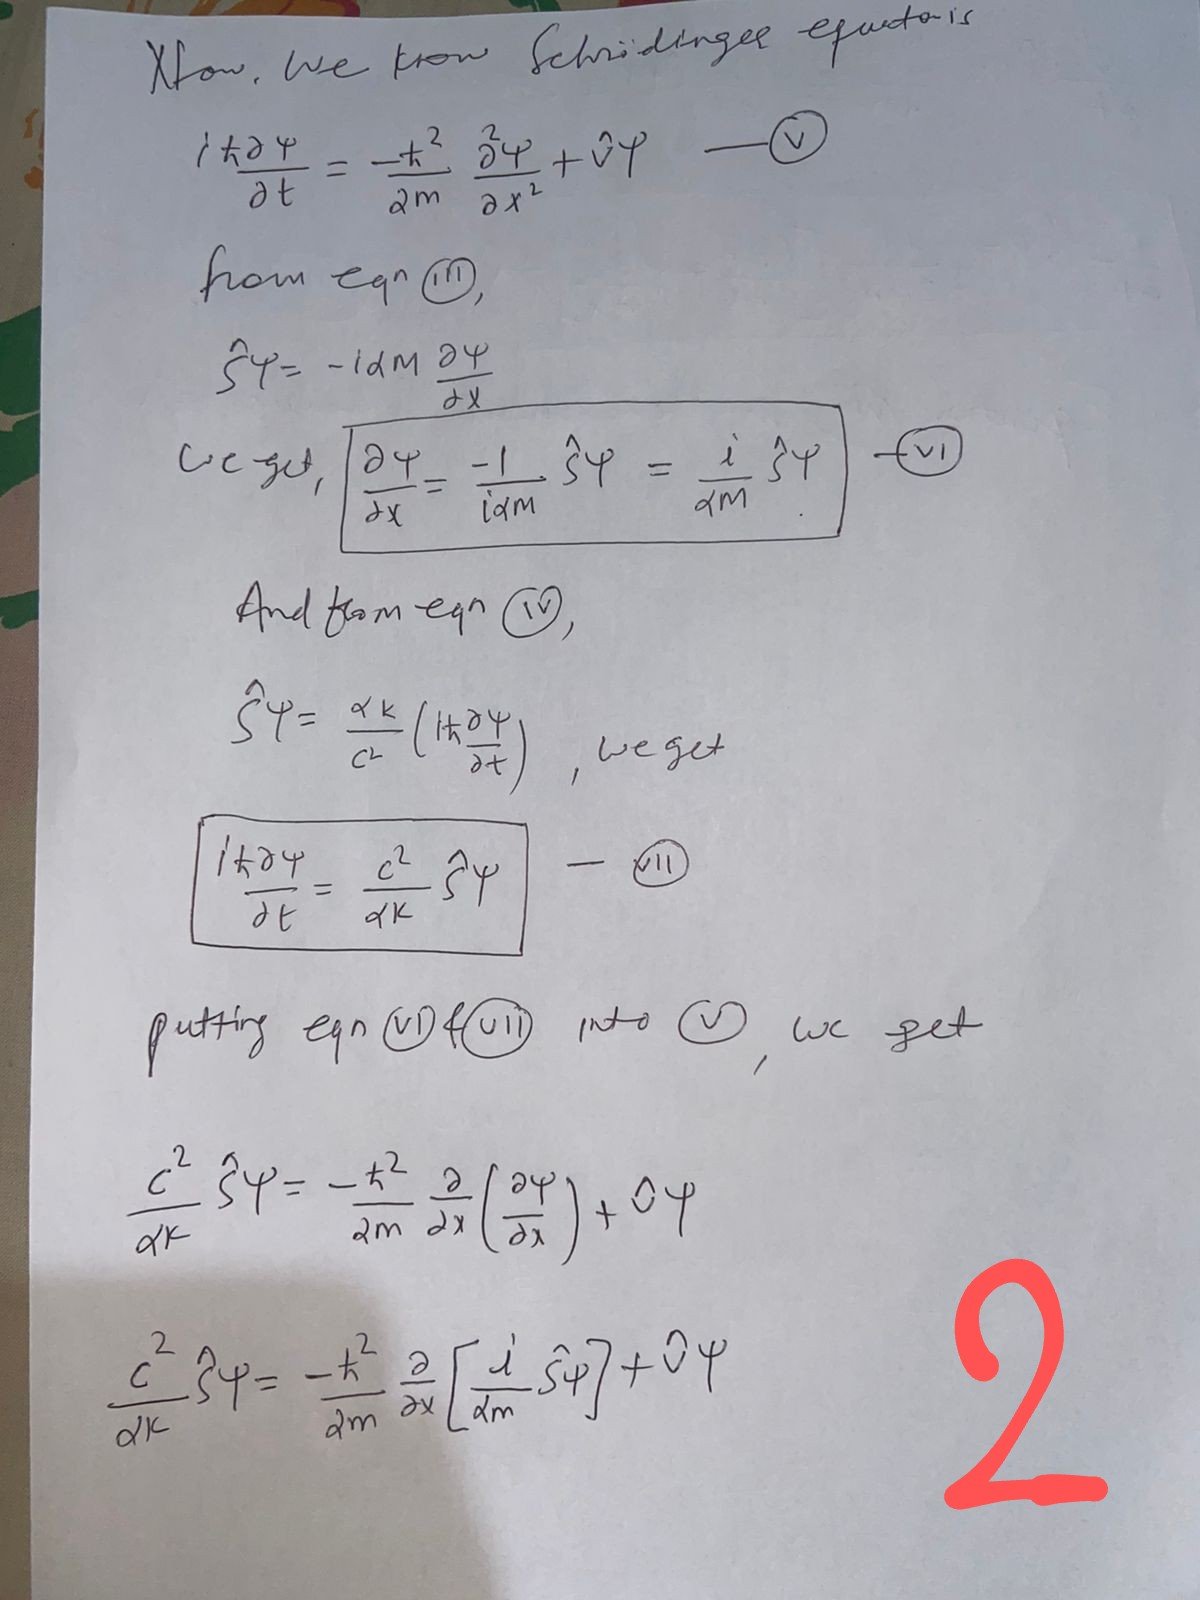 Now, We know Schrödinger equation is
iħ∂ψ/∂t = -ħ²/2m ∂²ψ/∂x² + V̂ψ — (V)
from eqn (III),
Ŝψ = -iαM ∂ψ/∂x
we get, ∂ψ/∂x = -1/iαM Ŝψ = i/αM Ŝψ — (VI)
And from eqn (IV),
Ŝψ = αK/c² (iħ∂ψ/∂t), we get
iħ∂ψ/∂t = c²/αK Ŝψ — (VII)
putting eqn (VI) & (VII) into (V), we get
c²/αK Ŝψ = -ħ²/2m ∂/∂x (∂ψ/∂x) + V̂ψ
c²/αK Ŝψ = -ħ²/2m ∂/∂x [i/αm Ŝψ] + V̂ψ
2